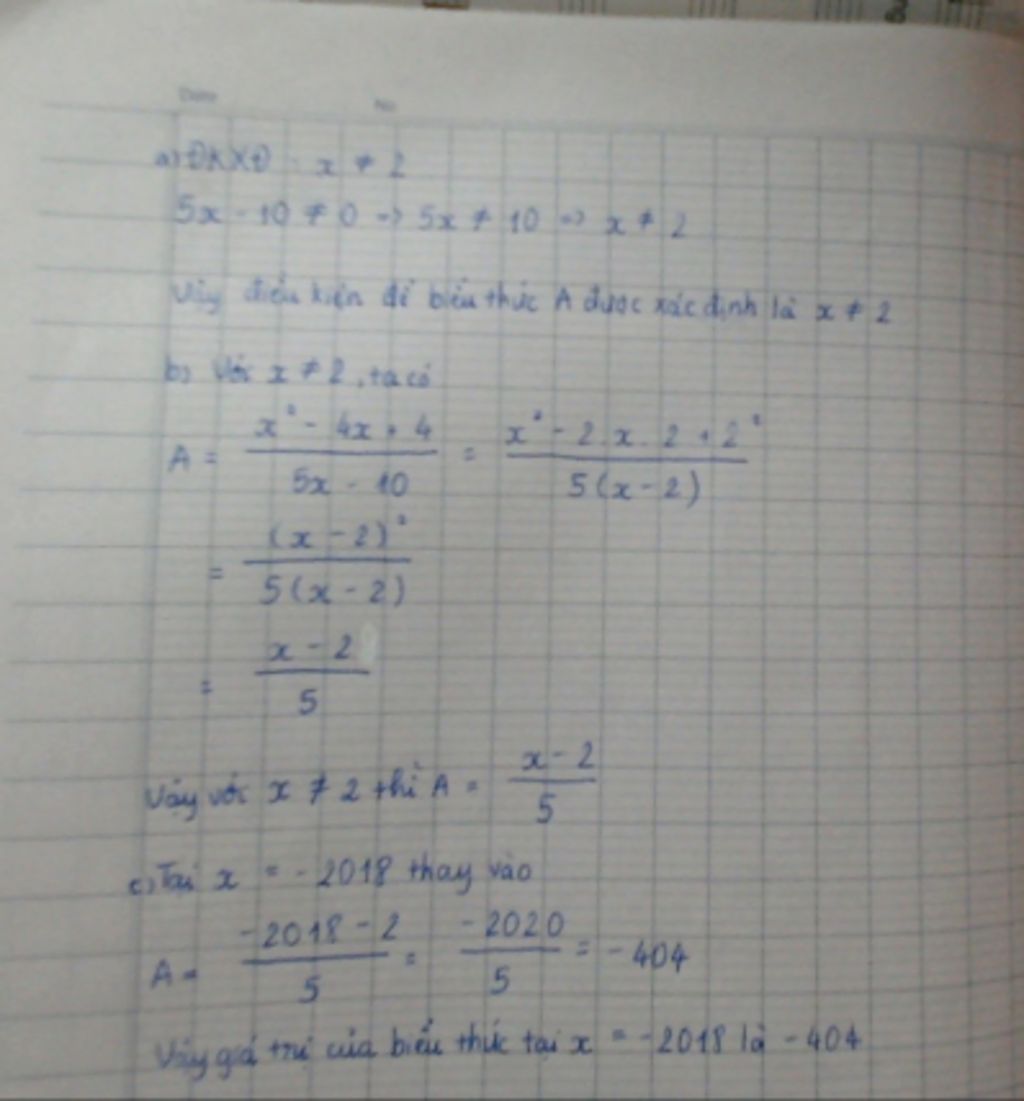 Date No
a) ĐKXĐ : x ≠ 2
5x - 10 ≠ 0 => 5x ≠ 10 => x ≠ 2
Vậy điều kiện để biểu thức A được xác định là x ≠ 2
b) Với x ≠ 2, ta có
A = (x² - 4x + 4)/(5x - 10) = (x² - 2.x.2 + 2²)/(5(x - 2))
= (x - 2)²/(5(x - 2))
= (x - 2)/5
Vậy với x ≠ 2 thì A = (x - 2)/5
c) Tại x = -2018 thay vào
A = (-2018 - 2)/5 = -2020/5 = -404
Vậy giá trị của biểu thức tại x = -2018 là -404